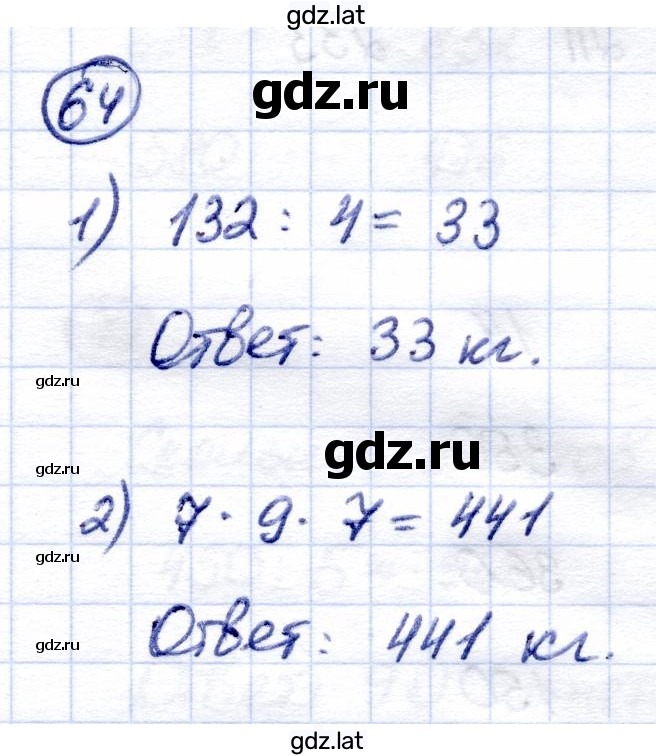 gdz.lat
gdz.ru
64
1) 132 : 4 = 33
Ответ: 33 кг.
gdz.ru
gdz.ru
gdz.ru
2) 7 · 9 · 7 = 441
gdz.ru
Ответ: 441 кг.
gdz.ru
gdz.lat